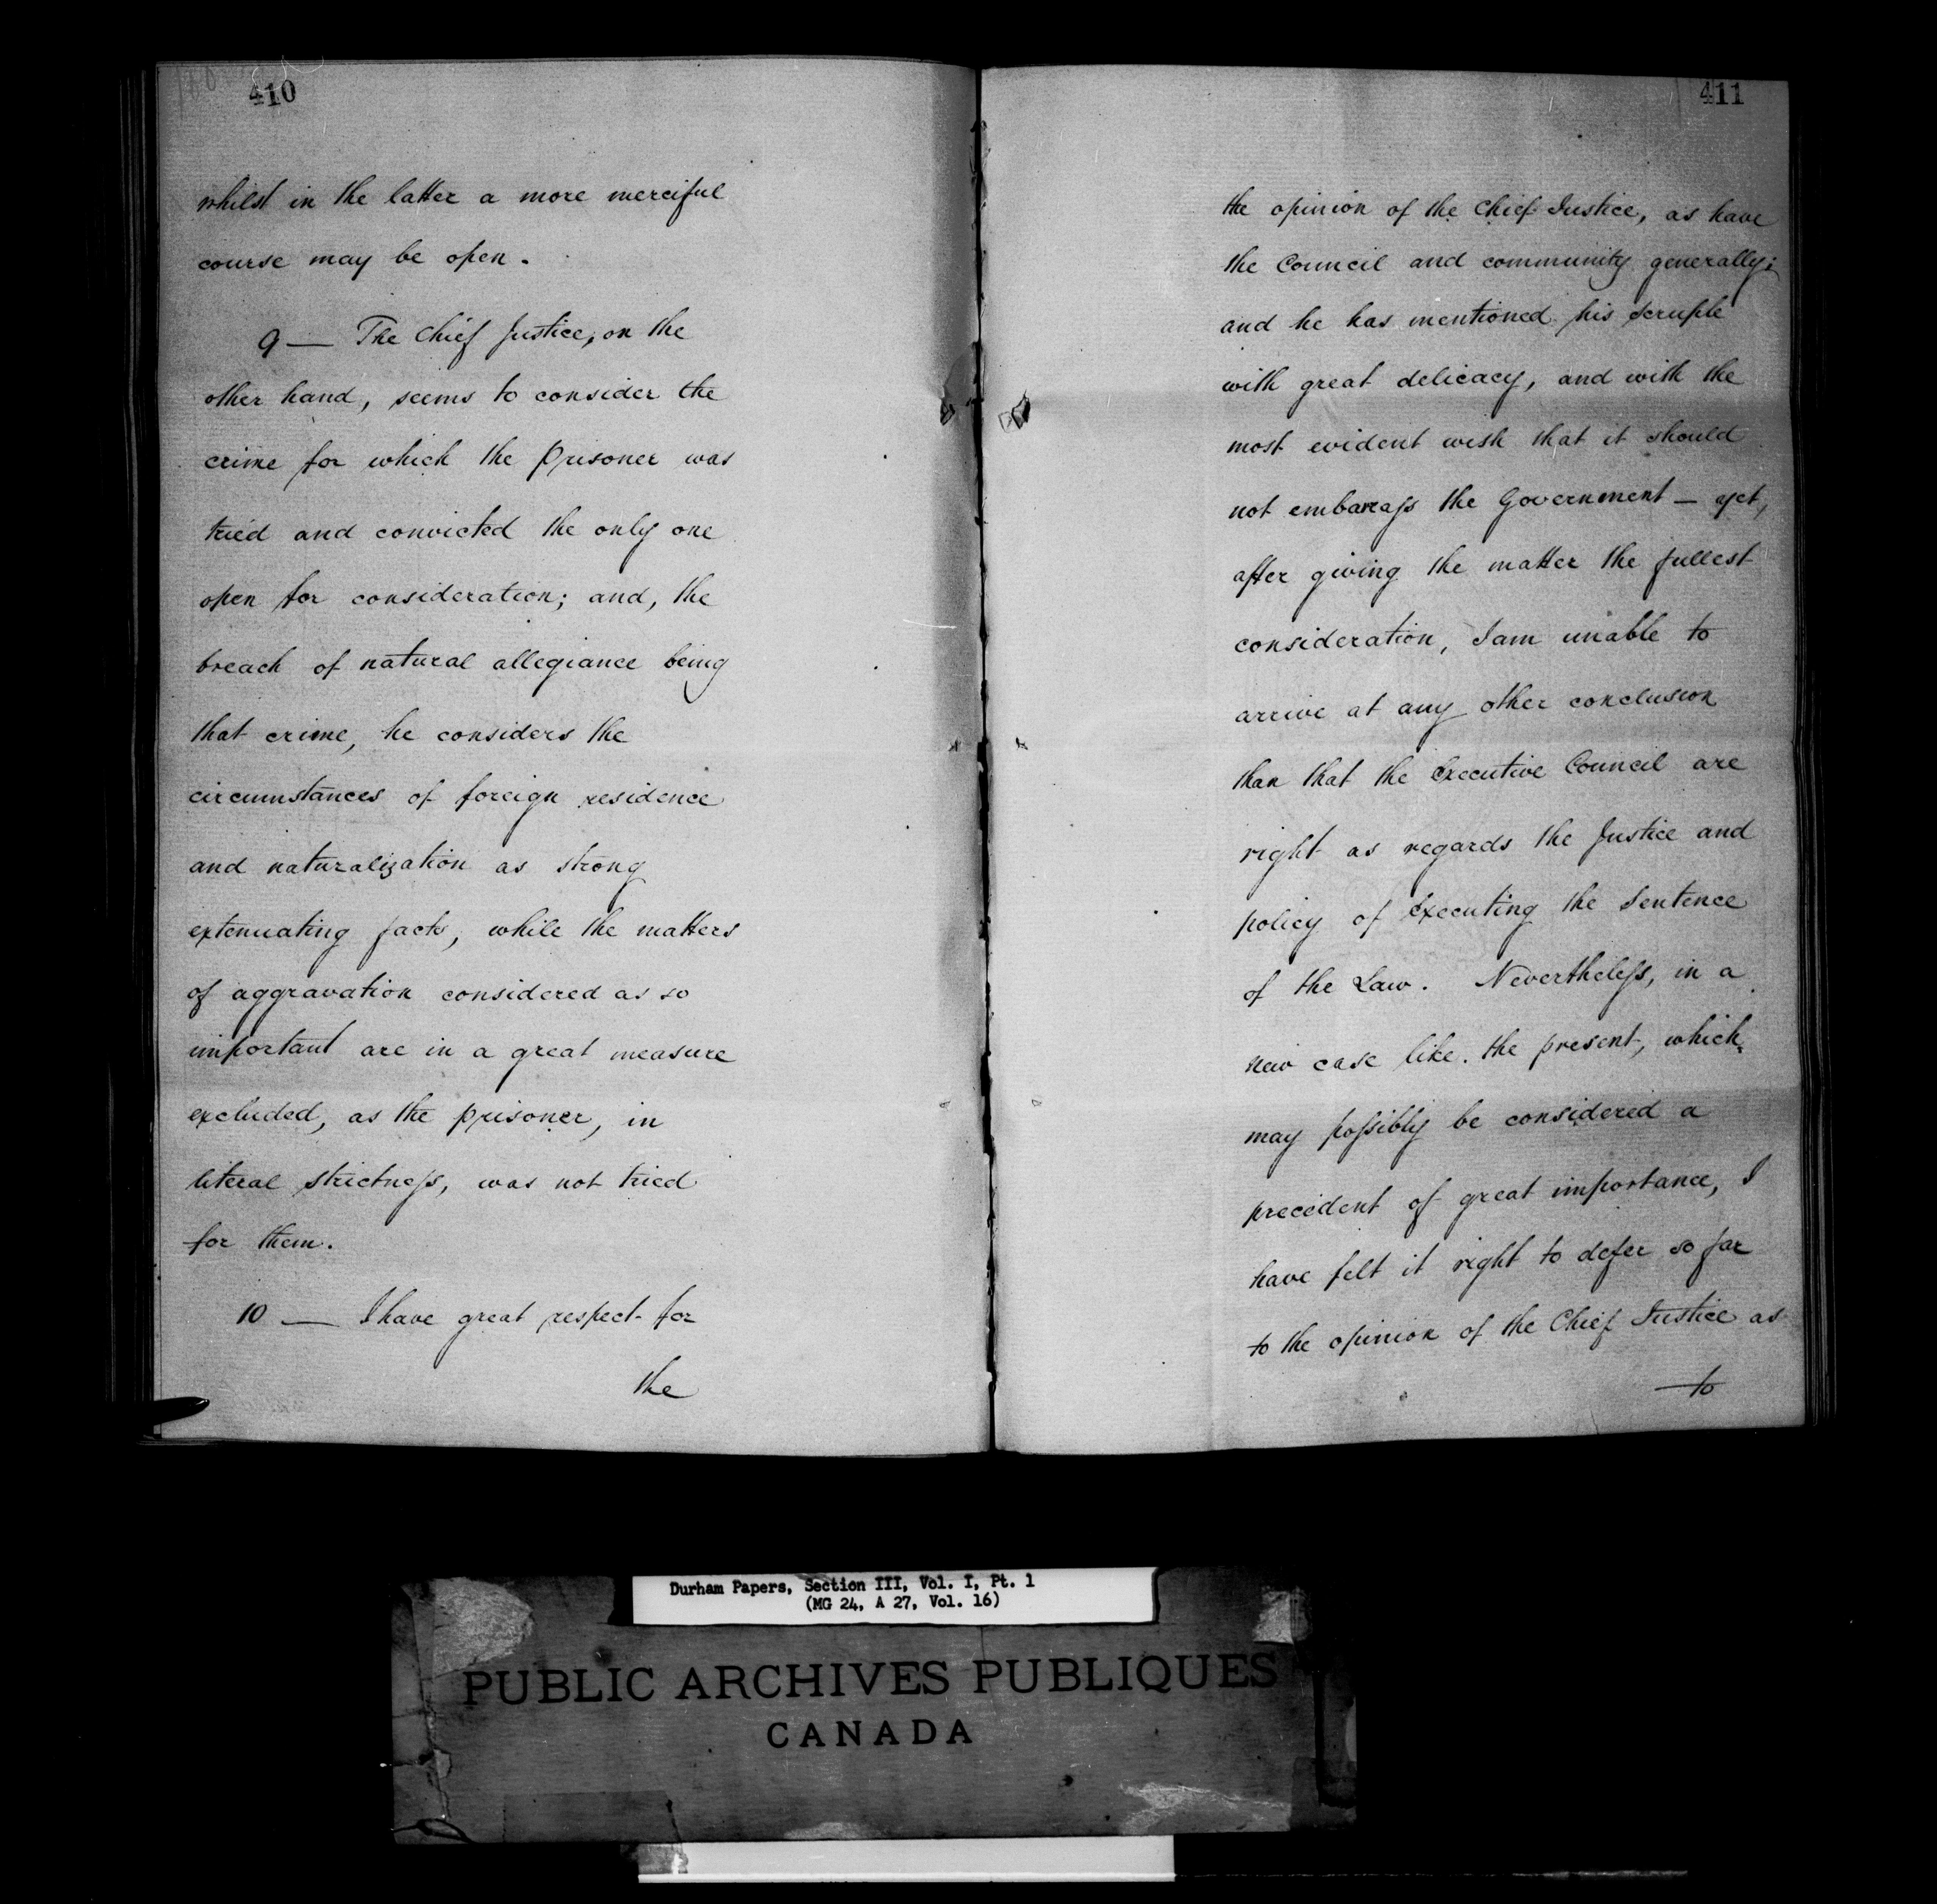 410
whilst in the latter a more merciful
course may be open.
9 — The Chief Justice, on the
other hand, seems to consider the
crime for which the prisoner was
tried and convicted the only one
open for consideration; and, the
breach of natural allegiance being
that crime, he considers the
circumstances of foreign residence
and naturalization as strong
extenuating facts, while the matters
of aggravation considered as so
important are in a great measure
excluded, as the prisoner, in
literal strictneſs, was not tried
for them.
10 — I have great respect for
the
411
the opinion of the Chief Justice, as have
the Council and community generally;
and he has mentioned his scruple
with great delicacy, and with the
most evident wish that it should
not embarraſs the Government — yet,
after giving the matter the fullest
consideration, I am unable to
arrive at any other conclusion
than that the Executive Council are
right as regards the Justice and
policy of executing the Sentence
of the Law. Nevertheleſs, in a
new case like the present, which
may poſsibly be considered a
precedent of great importance, I
have felt it right to defer so far
to the opinion of the Chief Justice as
to
Durham Papers, Section III, Vol. I, Pt. 1
(MG 24, A 27, Vol. 16)
PUBLIC ARCHIVES PUBLIQUES
CANADA